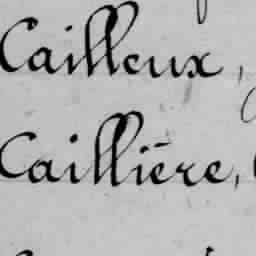 Cailleux,
Caillière,